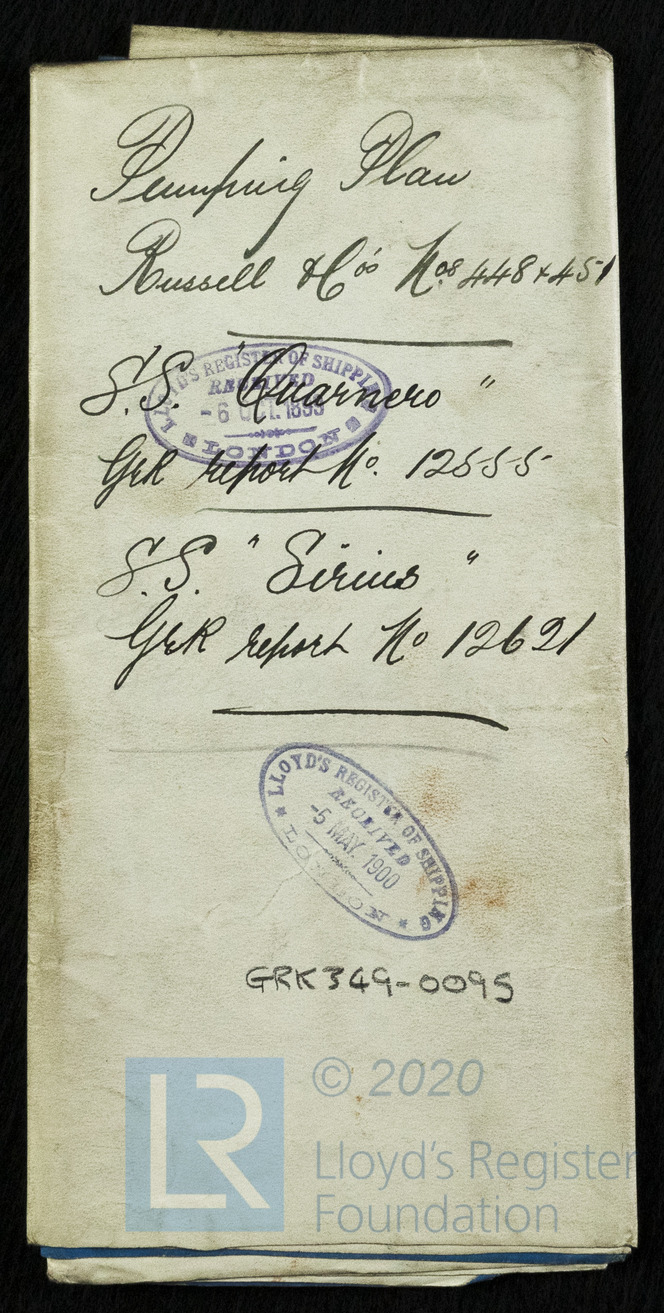 Pumping Plan
Russell & Co's Nos 448 & 451
S.S. "Quarnero"
LLOYD'S REGISTER OF SHIPPING
RECEIVED
-6 OCT. 1899
LONDON
Grk report No. 12555
S.S. "Sirius"
Grk report No 12621
LLOYD'S REGISTER OF SHIPPING
RECEIVED
-5 MAY. 1900
LONDON
GRK349-0095
LR
© 2020
Lloyd's Register
Foundation